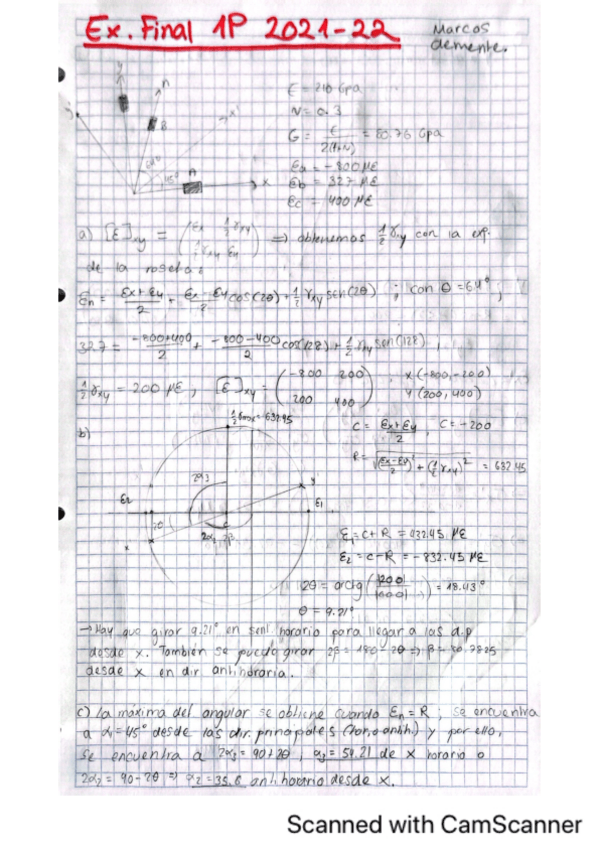 Ex. Final 1P 2021-22
Marcos
clemente.
E = 210 Gpa
N = 0.3
G = E / 2(1+N) = 80.76 Gpa
Ea = -800 µE
Eb = 327 µE
Ec = 400 µE
y n B 64º 45º A x x'
a) [E]xy = (Ex ½γxy ½γxy Ey) => obtenemos ½γxy con la exp.
de la roseta:
En = Ex+Ey/2 + Ex-Ey/2 cos(2θ) + ½γxy sen(2θ) ; con θ = 64º ;
327 = -800+400/2 + -800-400/2 cos(128) + ½γxy sen(128) ,
½γxy = 200 µE , [E]xy = (-800 200 200 400) , x(-800,-200)
y(200,400)
b)
½γmax = 632.45
C = Ex+Ey/2 , C = -200
R = √(Ex-Ey/2)² + (½γxy)² = 632.45
E2 2α3 y E1 2θ c x 2α2 2β
E1 = C+R = 432.45 µE
E2 = C-R = -832.45 µE
2θ = arctg(|200|/|600|) = 18.43º
θ = 9.21º
→ Hay que girar 9.21º en sent. horario para llegar a las d.p
desde x. También se puede girar 2β = 180-2θ => β = 80.7825
desde x en dir. antihoraria.
c) la máxima def angular se obtiene cuando En = R ; se encuentra
a α1 = 45º desde las dir. principales (hor. o antih.) y por ello,
se encuentra a 2α3 = 90+2θ , α3 = 54.21 de x horario o
2α2 = 90-2θ => α2 = 35.8 antihorario desde x.
Scanned with CamScanner